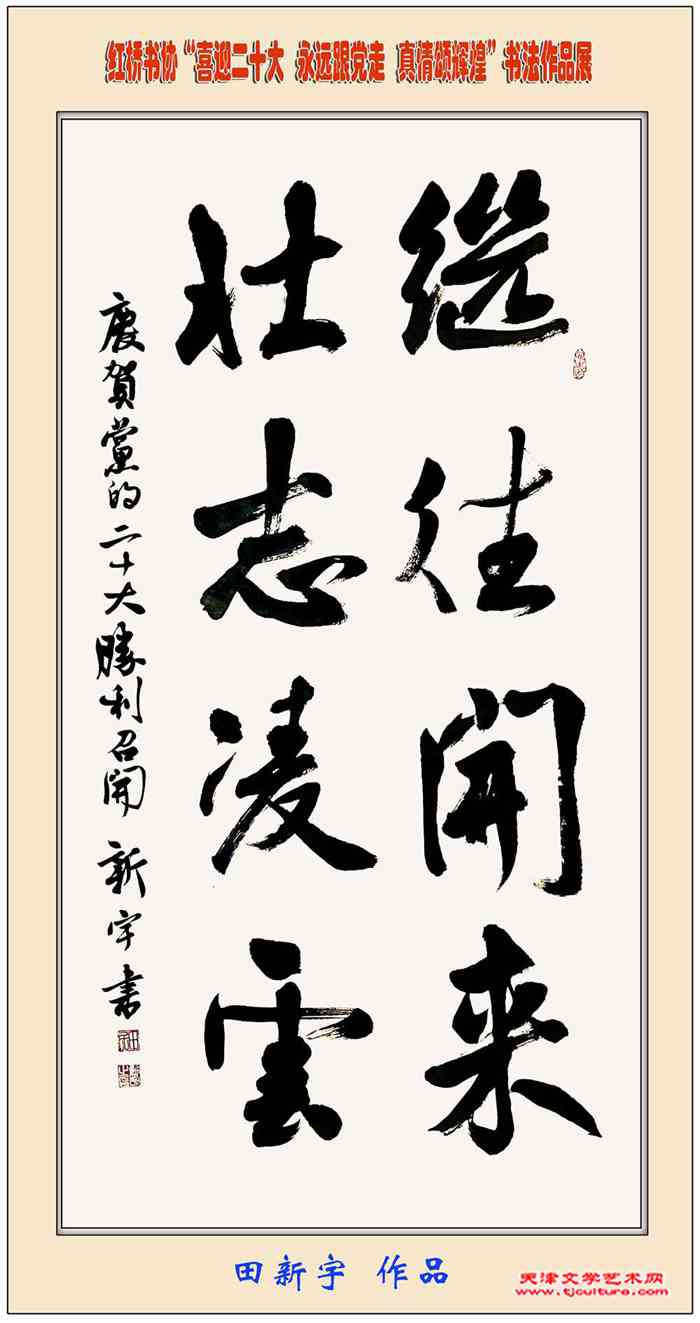 红桥书协“喜迎二十大 永远跟党走 真情颂辉煌”书法作品展
继往開来
壮志凌雲
慶賀黨的二十大勝利召開 新宇書
田新宇 作品
天津文学艺术网
www.tjculture.com